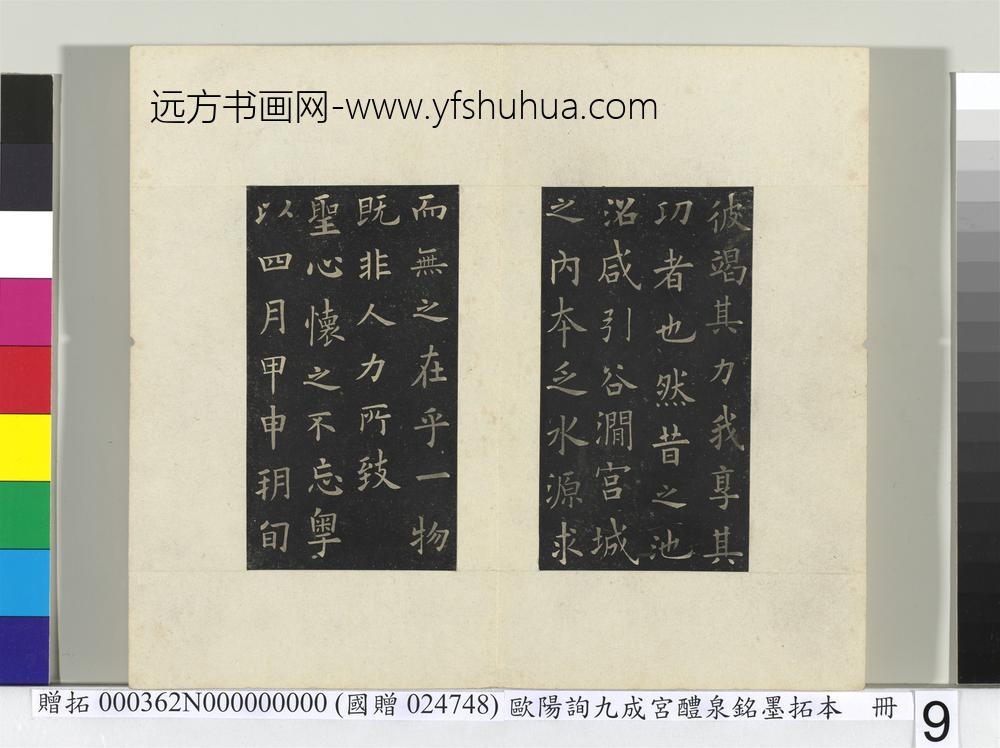 远方书画网-www.yfshuhua.com
彼竭其力我享其
功者也然昔之池
沼咸引谷澗宫城
之内本乏水源求
而無之在乎一物
既非人力所致
聖心懷之不忘粤
以四月甲申朔旬
贈拓 000362N000000000 (國贈 024748) 歐陽詢九成宮醴泉銘墨拓本 冊
9